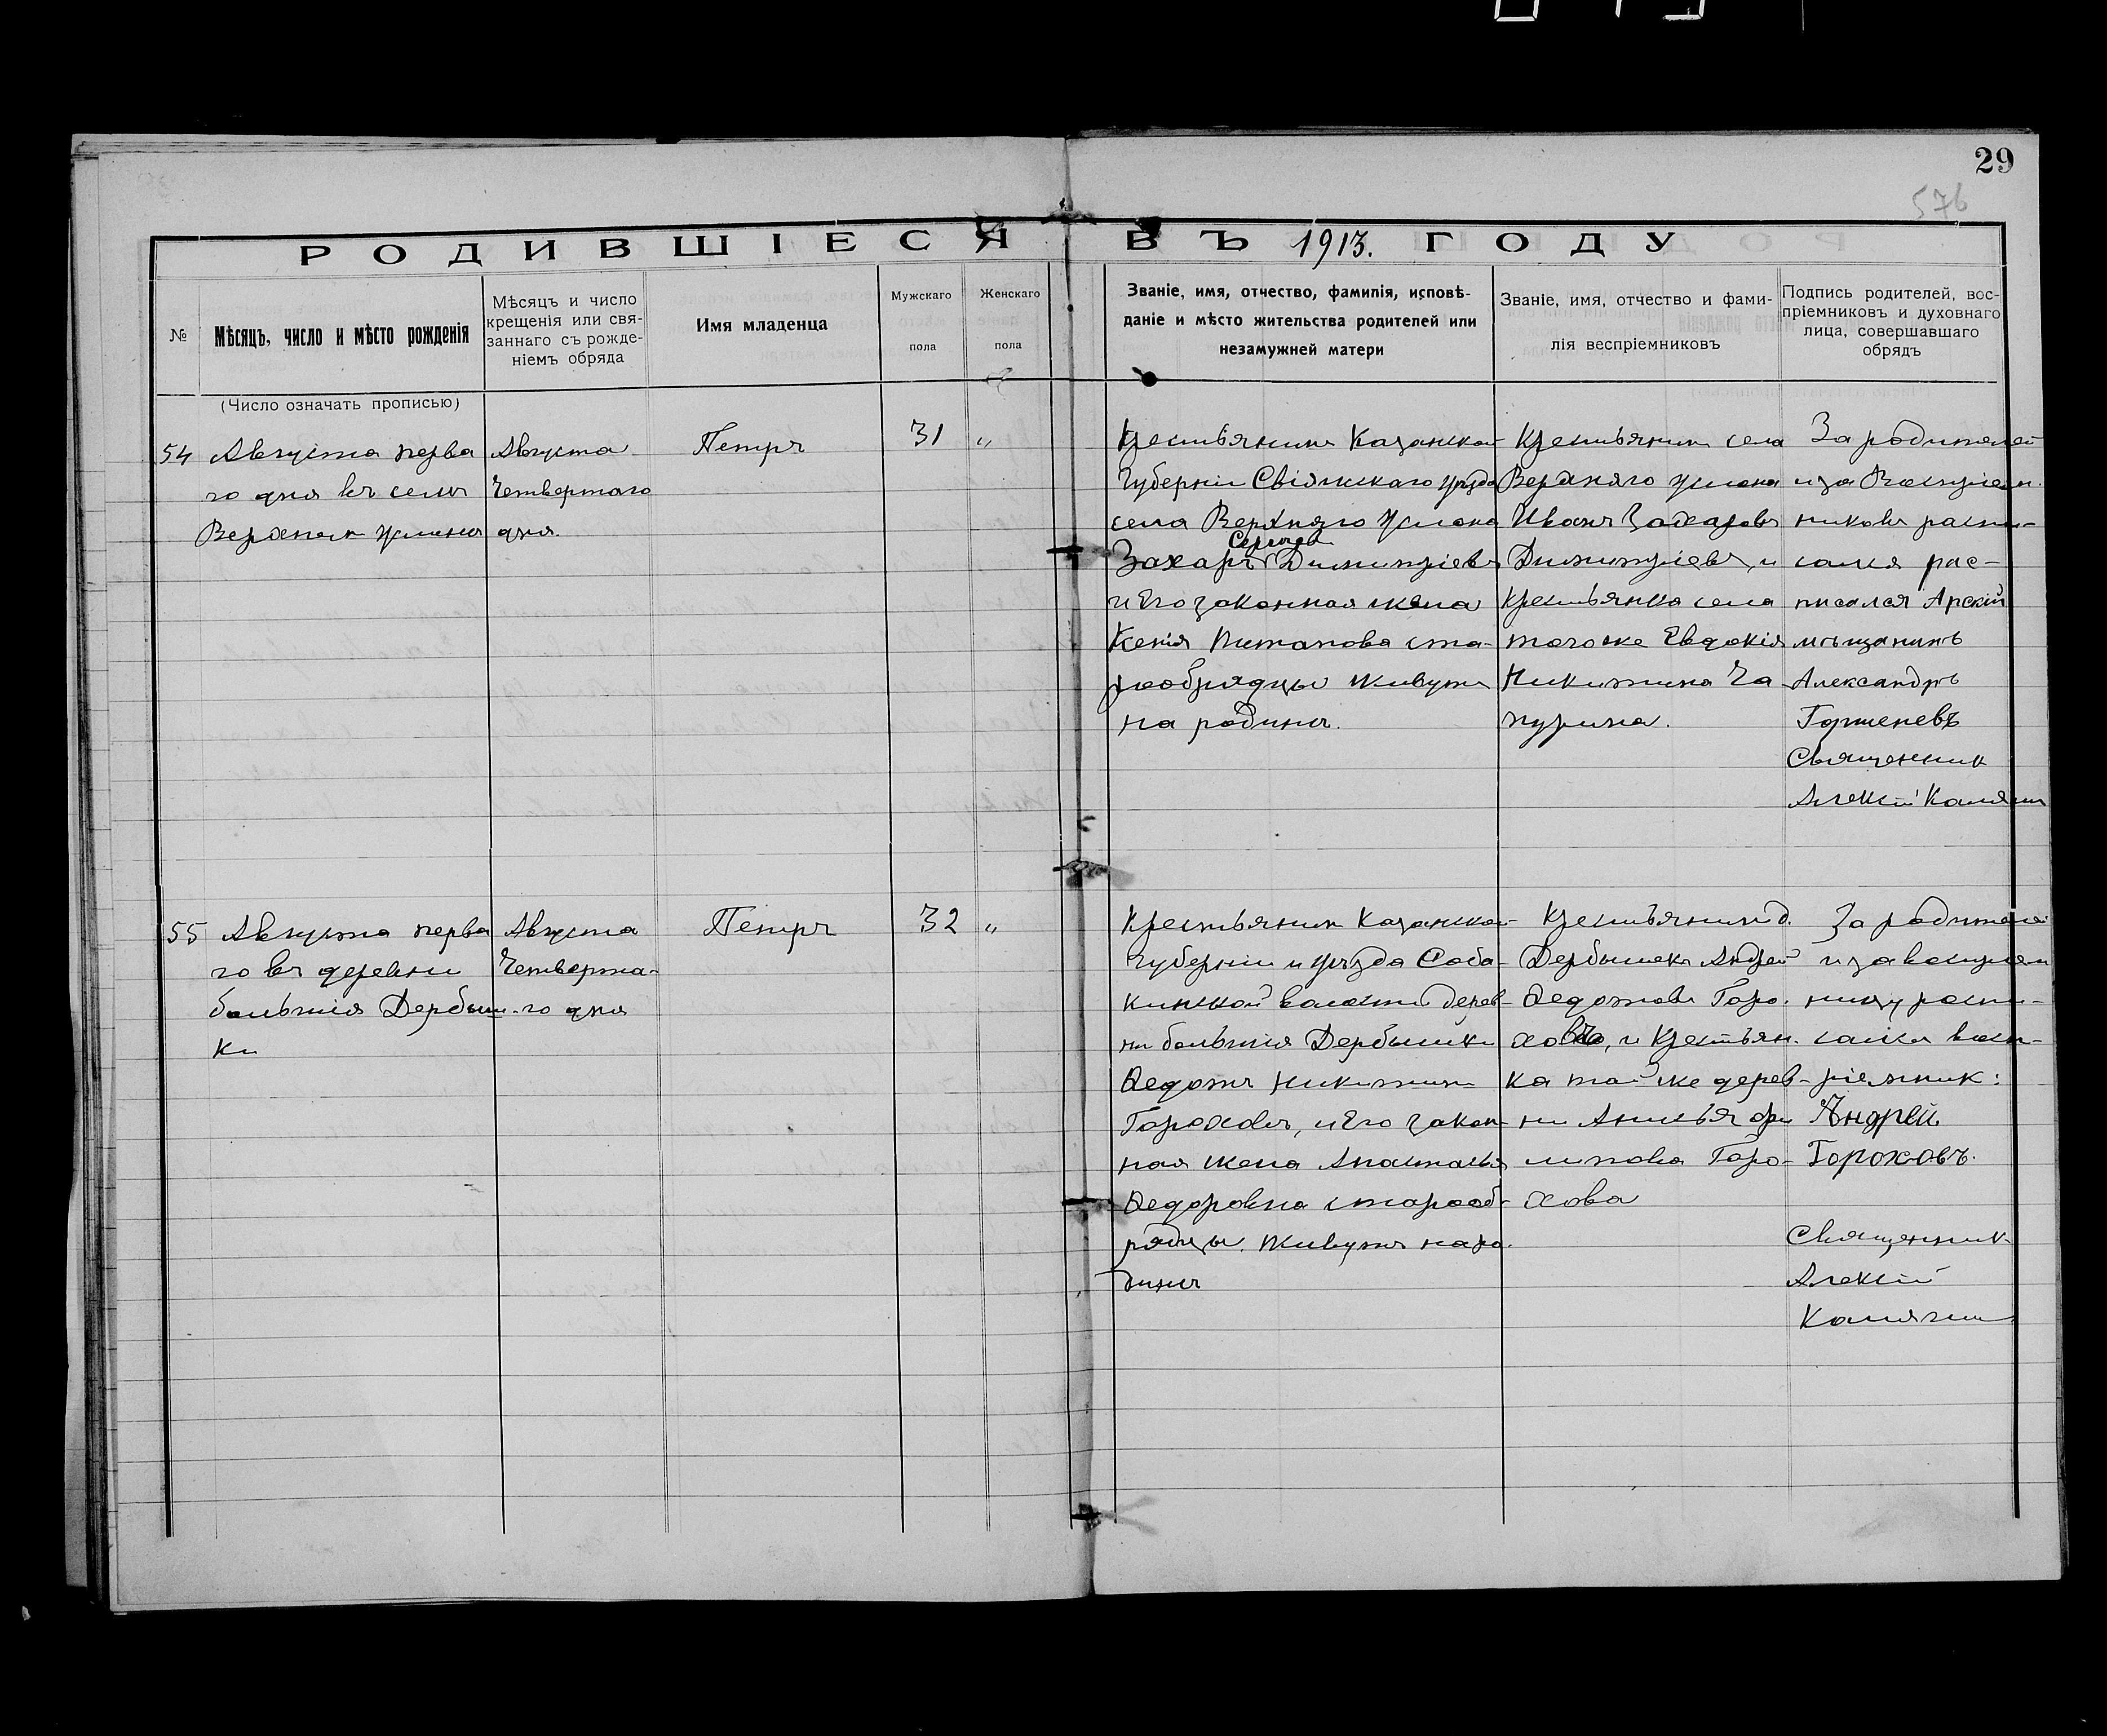 29
576
РОДИВШІЕСЯ ВЪ 1913. ГОДУ
№
Мѣсяцъ, число и мѣсто рожденія
Мѣсяцъ и число
крещенія или свя-
заннаго съ рожде-
ніемъ обряда
Имя младенца
Мужскаго
пола
Женскаго
пола
Званіе, имя, отчество, фамилія, исповѣ-
даніе и мѣсто жительства родителей или
незамужней матери
Званіе, имя, отчество и фами-
лія веспріемниковъ
Подпись родителей, вос-
пріемниковъ и духовнаго
лица, совершавшаго
обрядъ
(Число означать прописью)
54
Августа перва
го дня въ селѣ
Верхнем Услонѣ
Августа
Четвертаго
дня.
Петръ
31
„
Крестьянинъ Казанской
Губерніи Свіяжскаго уѣзда
села Верхняго Услона
Сергеев
Захаръ Димитріевъ
и Его законная жена
Ксенія Потапова ста-
рообрядцы живутъ
на родинѣ.
Крестьянинъ села
Верхняго Услона
Иванъ Захаровъ
Димитріевъ, и
крестьянка села
того же Евдокія
Никитина Ча
пурина.
За родителей
и за Воспріем
никовъ распи-
сался рас-
писался Арскій
мѣщанинъ
Александръ
Горшеневъ
Священник
Алексій Калягин
55
Августа перва
го въ деревни
большія Дербыш
ки
Августа
Четверта-
го дня
Петръ
32
„
Крестьянин Казанской
Губерніи и уѣзда Соба-
кинской волости дерев-
ни большія Дербышки
Федотъ Никитин
Гороховъ, и Его закон-
ная жена Анастасья
Федоровна старооб-
рядцы. Живутъ на ро-
динѣ
Крестьянин д.
Дербышекъ Андрей
Федотовъ Горо-
ховъ, и Крестьян-
ка той же дерев-
ни Анисья Фи
липова Горо-
хова
За родителей
и за воспріем
ницу распи-
сался восп-
ріемник:
Андрей
Гороховъ.
Священник
Алексій
Калягин